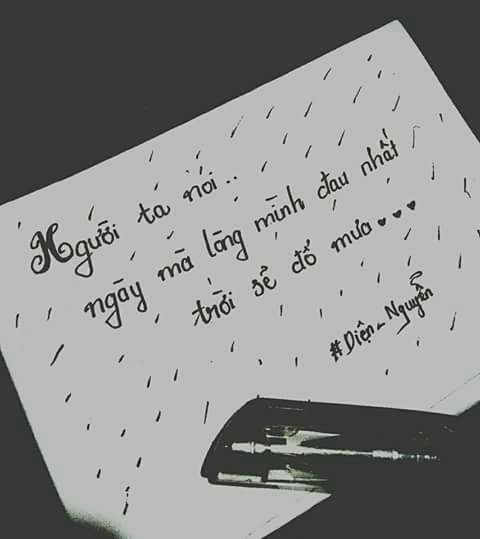 Người ta nói..
ngày mà lòng mình đau nhất
trời sẽ đổ mưa♥♥♥
#Diện_Nguyễn